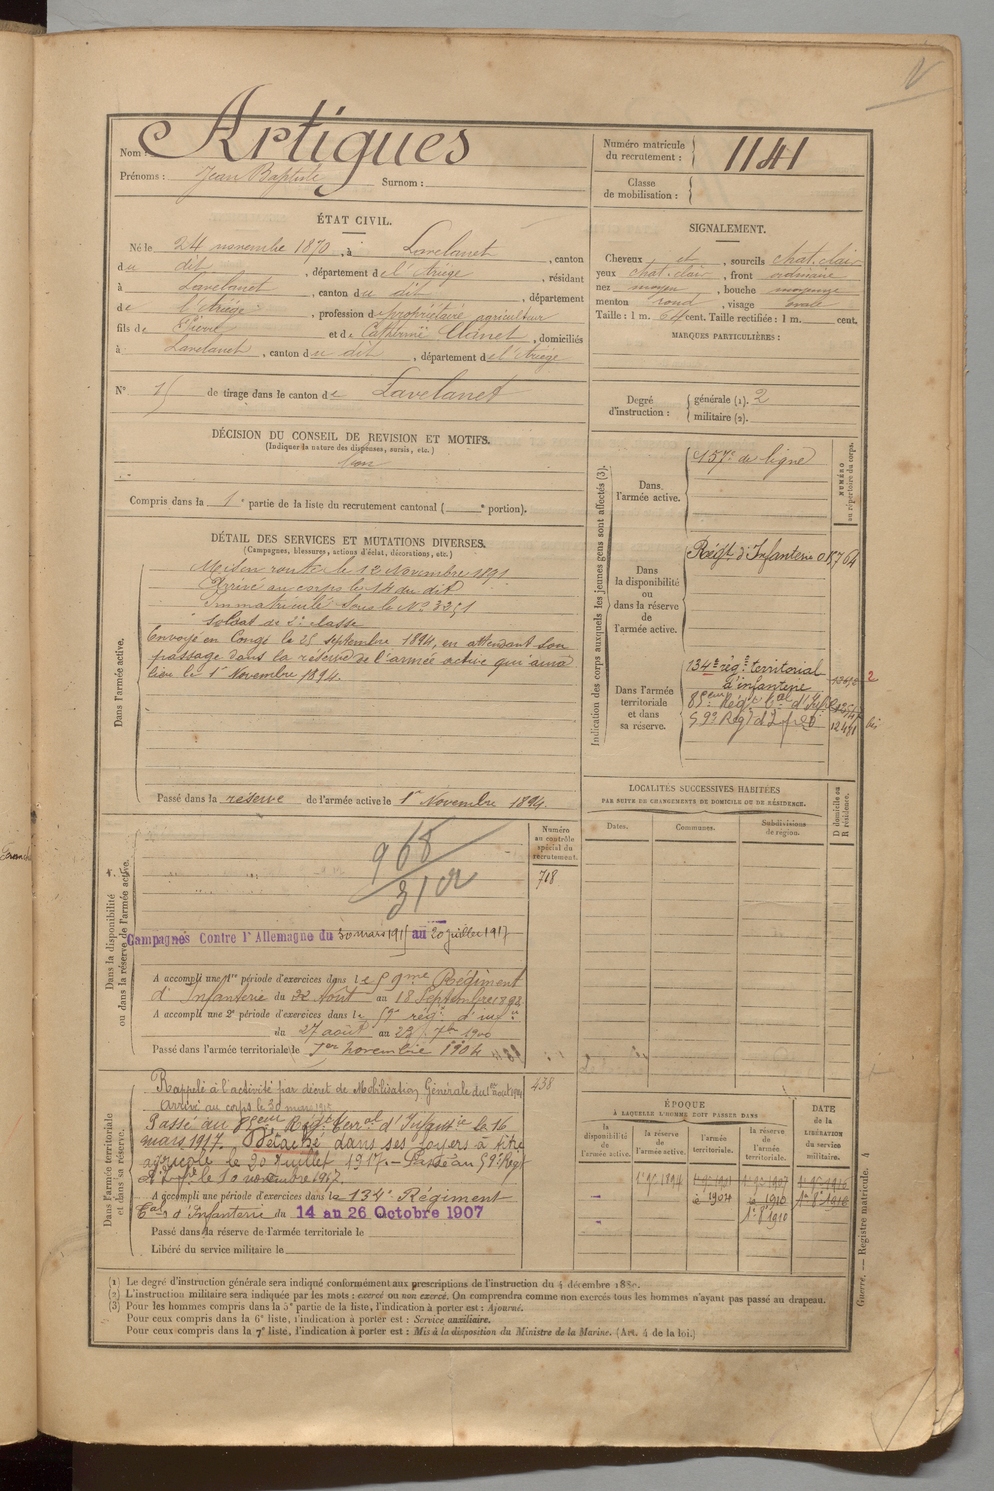 Nom : Artigues
Prénoms : Jean Baptiste Surnom :
Numéro matricule du recrutement : 1141
Classe de mobilisation :
ÉTAT CIVIL.
Né le 24 novembre 1870, à Lavelanet, canton
du dit, département de l'Ariège, résidant
à Lavelanet, canton du dit, département
de l'Ariège, profession de propriétaire agriculteur
fils de Pierre et de Catherine Clanet, domiciliés
à Lavelanet, canton du dit, département de l'Ariège
N° 15 de tirage dans le canton de Lavelanet
SIGNALEMENT.
Cheveux et, sourcils chat. clair
yeux chat. clair, front ordinaire
nez moyen, bouche moyenne
menton rond, visage ovale
Taille : 1 m. 64 cent. Taille rectifiée : 1 m. cent.
MARQUES PARTICULIÈRES :
Degré d'instruction : générale (1). 2
militaire (2).
DÉCISION DU CONSEIL DE REVISION ET MOTIFS.
(Indiquer la nature des dispenses, sursis, etc.)
Bon
Compris dans la 1e partie de la liste du recrutement cantonal ( e portion).
DÉTAIL DES SERVICES ET MUTATIONS DIVERSES.
(Campagnes, blessures, actions d'éclat, décorations, etc.)
Dans l'armée active.
Mis en route le 12 Novembre 1891
Arrivé au corps le 14 du dit
Immatriculé sous le No 3251
Soldat de 2e classe
Envoyé en Congé le 25 septembre 1894, en attendant son
passage dans la réserve de l'armée active qui aura
lieu le 1er Novembre 1894.
Passé dans la réserve de l'armée active le 1er Novembre 1894.
Indication des corps auxquels les jeunes gens sont affectés (3).
NUMÉRO au répertoire du corps.
Dans l'armée active.
157e de ligne
Dans la disponibilité ou dans la réserve de l'armée active.
Régt d'Infanterie 01764
Dans l'armée territoriale et dans sa réserve.
134e rég. territorial
d'infanterie
2
85eme Régt tal d'Infie
59e Régt d'Infrie 12471 bis
LOCALITÉS SUCCESSIVES HABITÉES
PAR SUITE DE CHANGEMENTS DE DOMICILE OU DE RÉSIDENCE.
D domicile ou R résidence.
Dates. Communes. Subdivisions de région.
Dans la disponibilité ou dans la réserve de l'armée active.
Numéro au contrôle spécial du recrutement.
718
968
312
Campagnes Contre l'Allemagne du 30 mars 1915 au 20 juillet 1917
A accompli une 1re période d'exercices dans le 59me Régiment
d'Infanterie du 22 Août au 18 Septembre 1898
A accompli une 2e période d'exercices dans le 59e rég. d'infie
du 27 août au 23 7bre 1900
Passé dans l'armée territoriale le 1er novembre 1904
Dans l'armée territoriale et dans sa réserve.
438
Rappelé à l'activité par décret de Mobilisation Générale du 1er août 1914
Arrivé au corps le 30 mars 1915
Passé au 85eme Régt terral d'Infie le 16
mars 1917. Détaché dans ses foyers à titre
agricole le 20 Juillet 1917. – Passé au 59e Regt
d'Infie le 10 novembre 1917.
A accompli une période d'exercices dans le 134e Régiment
Tal d'Infanterie du 14 au 26 Octobre 1907
Passé dans la réserve de l'armée territoriale le
Libéré du service militaire le
ÉPOQUE
A LAQUELLE L'HOMME DOIT PASSER DANS
DATE DE LA LIBÉRATION du service militaire.
la disponibilité de l'armée active.
la réserve de l'armée active.
l'armée territoriale.
la réserve de l'armée territoriale.
1er 9bre 1894
1904
1910
1er 8bre 1910
(1) Le degré d'instruction générale sera indiqué conformément aux prescriptions de l'instruction du 4 décembre 1889.
(2) L'instruction militaire sera indiquée par les mots : exercé ou non exercé. On comprendra comme non exercés tous les hommes n'ayant pas passé au drapeau.
(3) Pour les hommes compris dans la 5e partie de la liste, l'indication à porter est : Ajourné.
Pour ceux compris dans la 6e liste, l'indication à porter est : Service auxiliaire.
Pour ceux compris dans la 7e liste, l'indication à porter est : Mis à la disposition du Ministre de la Marine. (Art. 4 de la loi.)
Guerre. — Registre matricule. 4